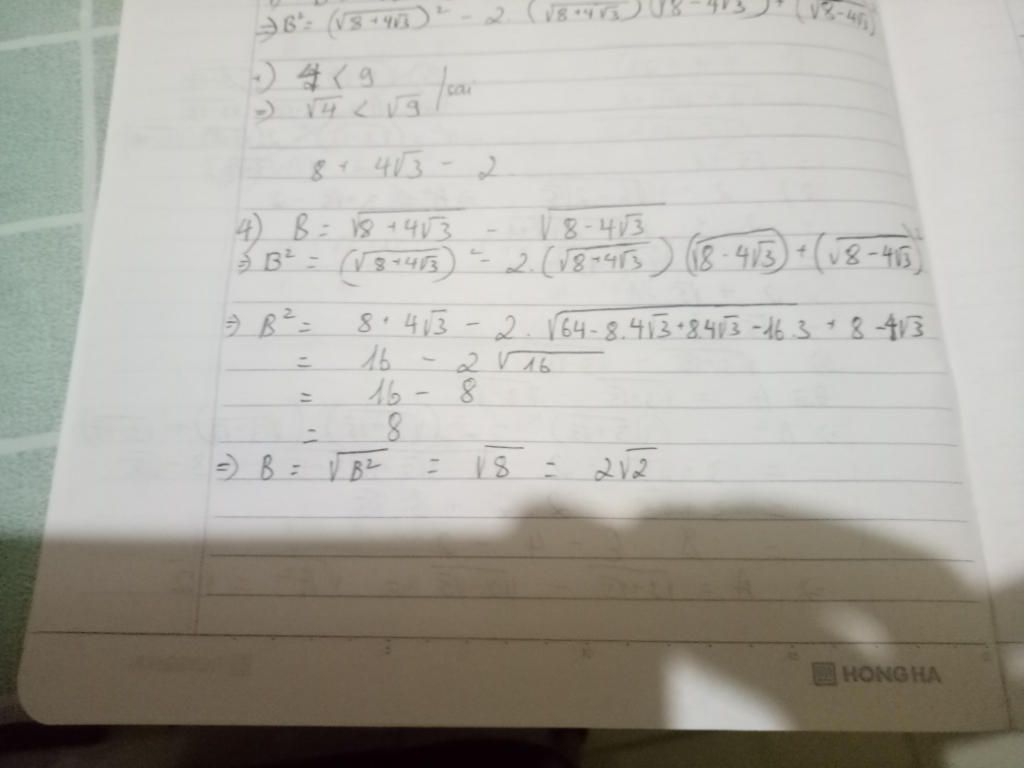 ⇒ B² = (√8+4√3)² - 2. (√8+4√3)(√8-4√3) + (√8-4√3)
+) 4 < 9 / sai
⇒ √4 < √9
8 + 4√3 - 2
4) B = √8+4√3 - √8-4√3
⇒ B² = (√8+4√3)² - 2.(√8+4√3)(√8-4√3) + (√8-4√3)²
⇒ B² = 8 + 4√3 - 2. √64-8.4√3+8.4√3-16.3 + 8 - 4√3
= 16 - 2√16
= 16 - 8
= 8
⇒ B = √B² = √8 = 2√2
HONG HA